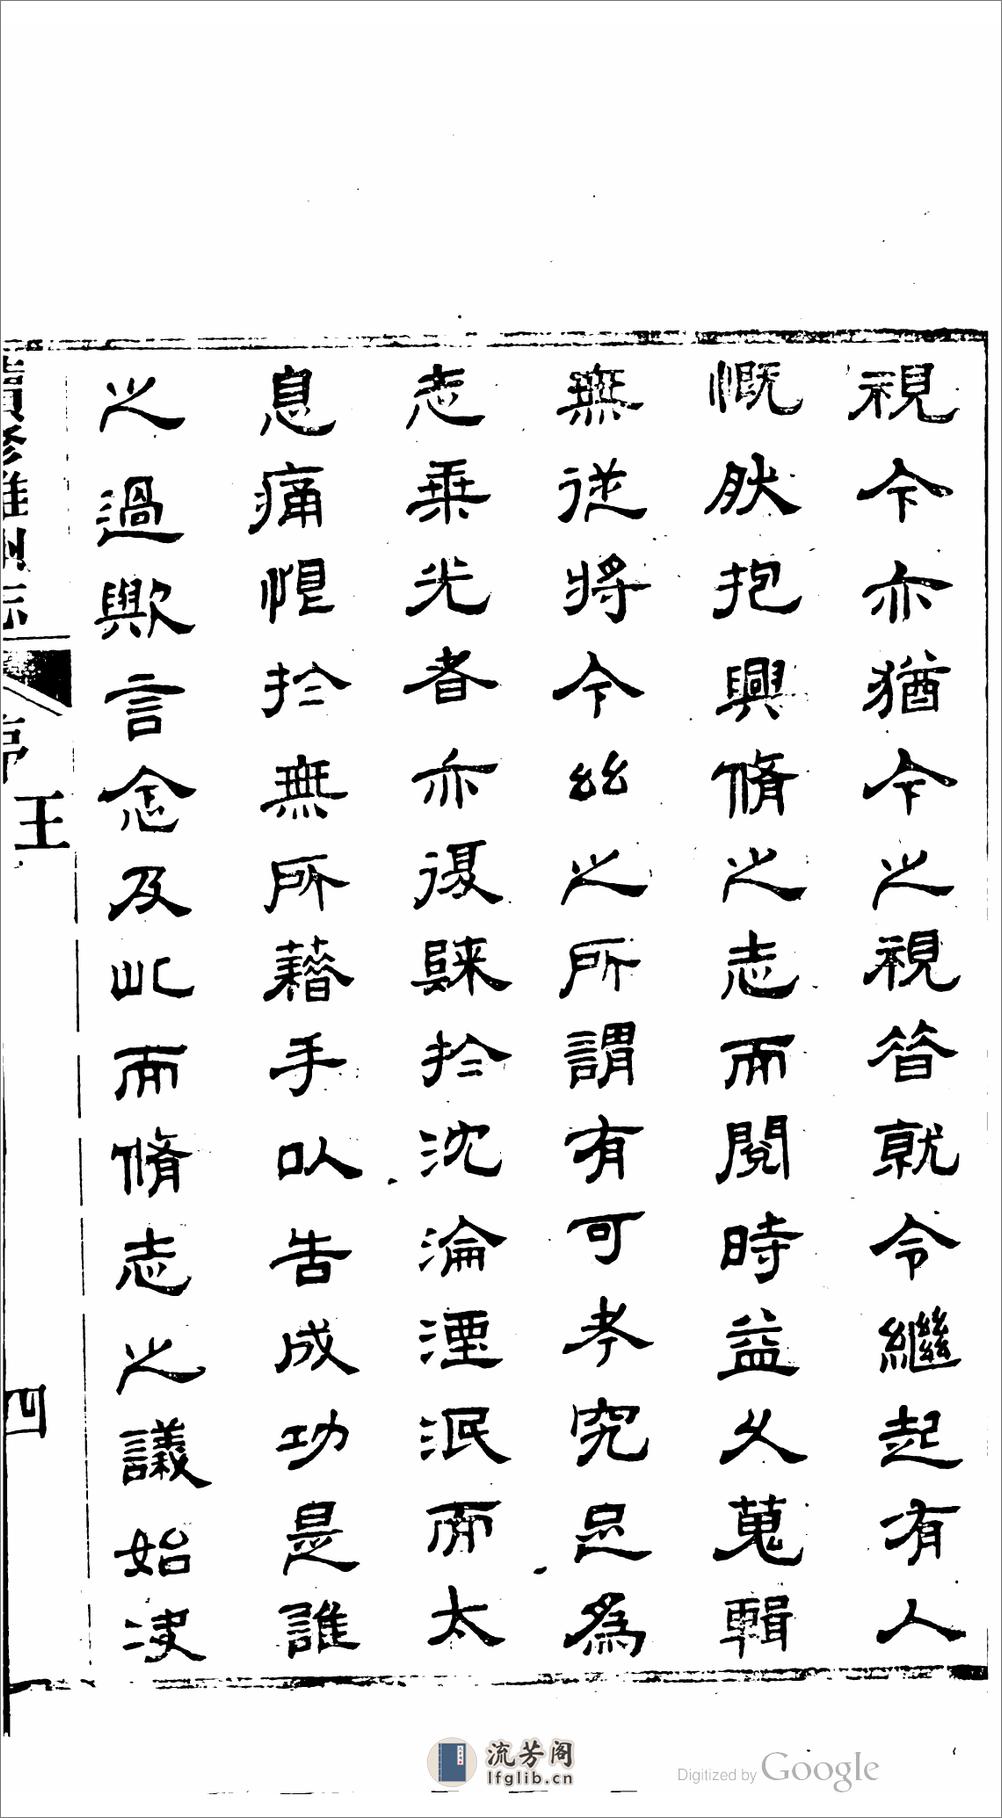 視今亦猶今之視昝就令繼起有人
慨肰抱興脩之志而閱時益久蒐輯
無從將今玆之所謂有可考究足為
志乗光者亦復歸扵沈淪湮泯而太
息痛恨扵無所藉手㕥告成功是誰
之過歟言念及此而脩志之議始决
續修雎州志
序
王
四
流芳阁
lfglib.cn
Digitized by Google